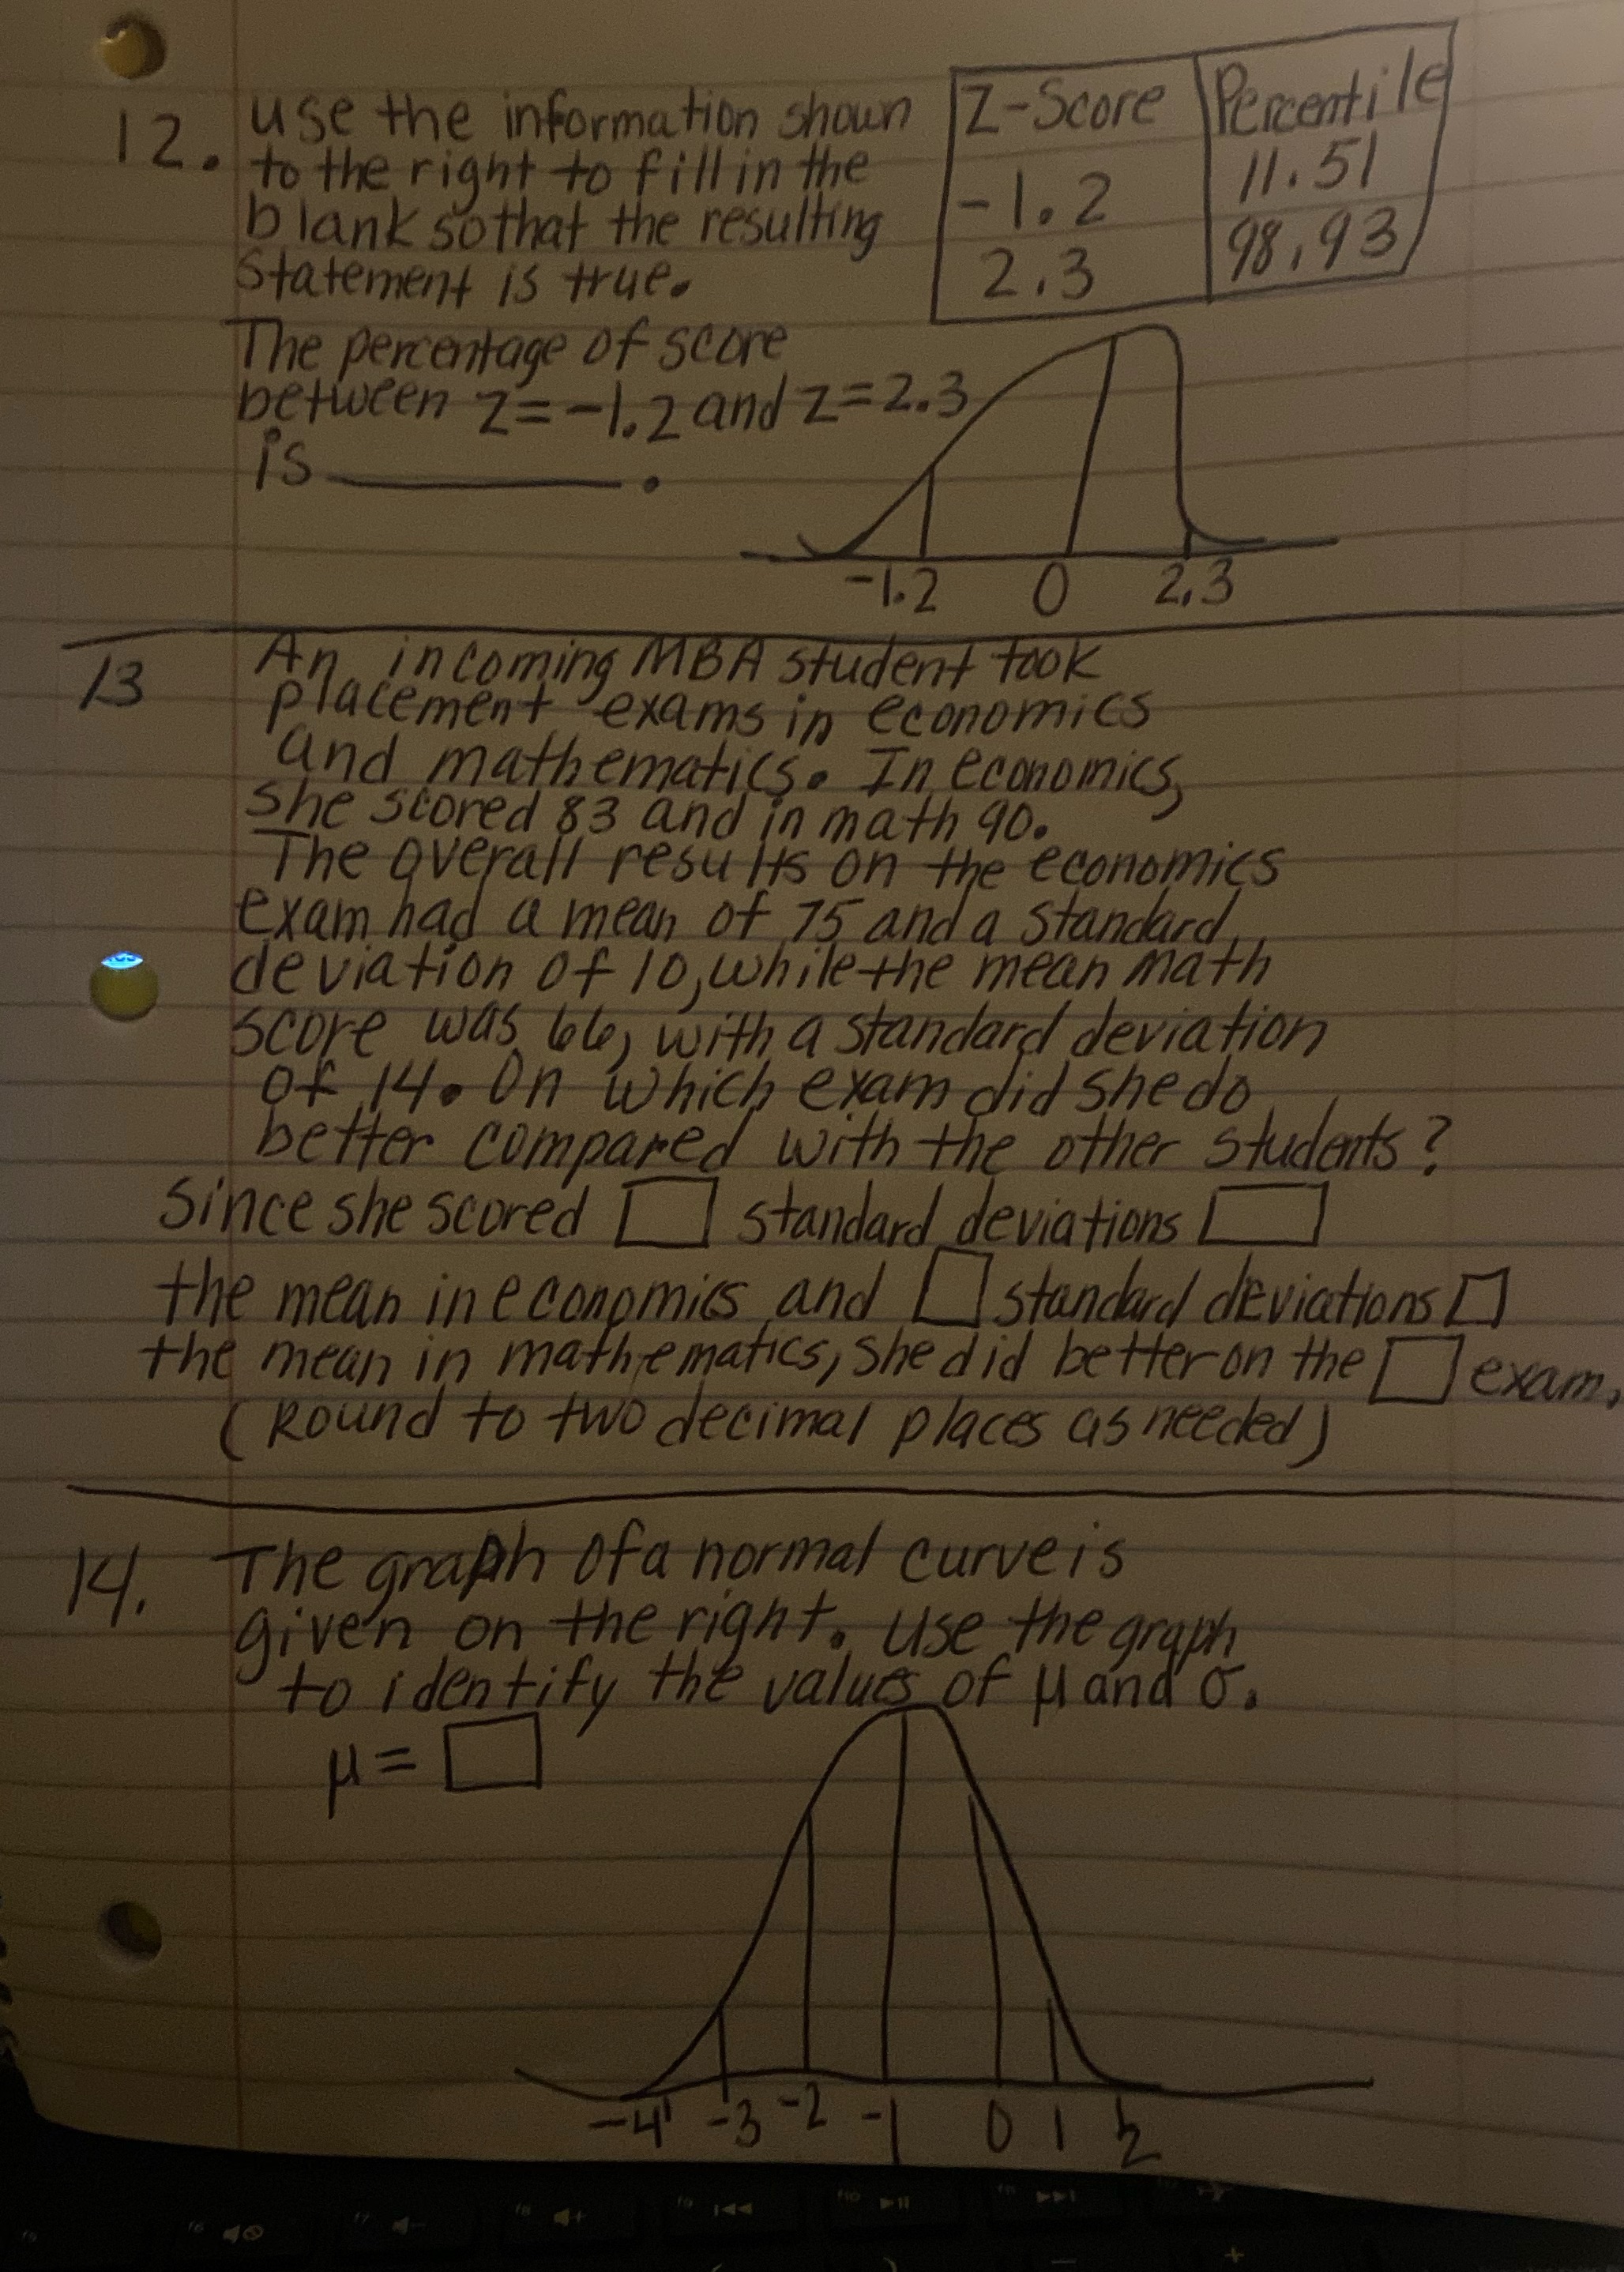 12. use the information shown
to the right to fill in the
blank so that the resulting
statement is true.
Z-Score Percentile
-1.2 11.51
2.3 98.93
The percentage of score
between z=-1.2 and z=2.3
is ________.
-1.2 0 2.3
13 An incoming MBA student took
placement exams in economics
and mathematics. In economics,
she scored 83 and in math 90.
The overall results on the economics
exam had a mean of 75 and a standard
deviation of 10, while the mean math
score was 66, with a standard deviation
of 14. On which exam did she do
better compared with the other students?
since she scored □ standard deviations □
the mean in economics and □ standard deviations □
the mean in mathematics, she did better on the □ exam.
(Round to two decimal places as needed)
14. The graph of a normal curve is
given on the right. Use the graph
to identify the values of μ and σ.
μ = □
-4 -3 -2 -1 0 1 2